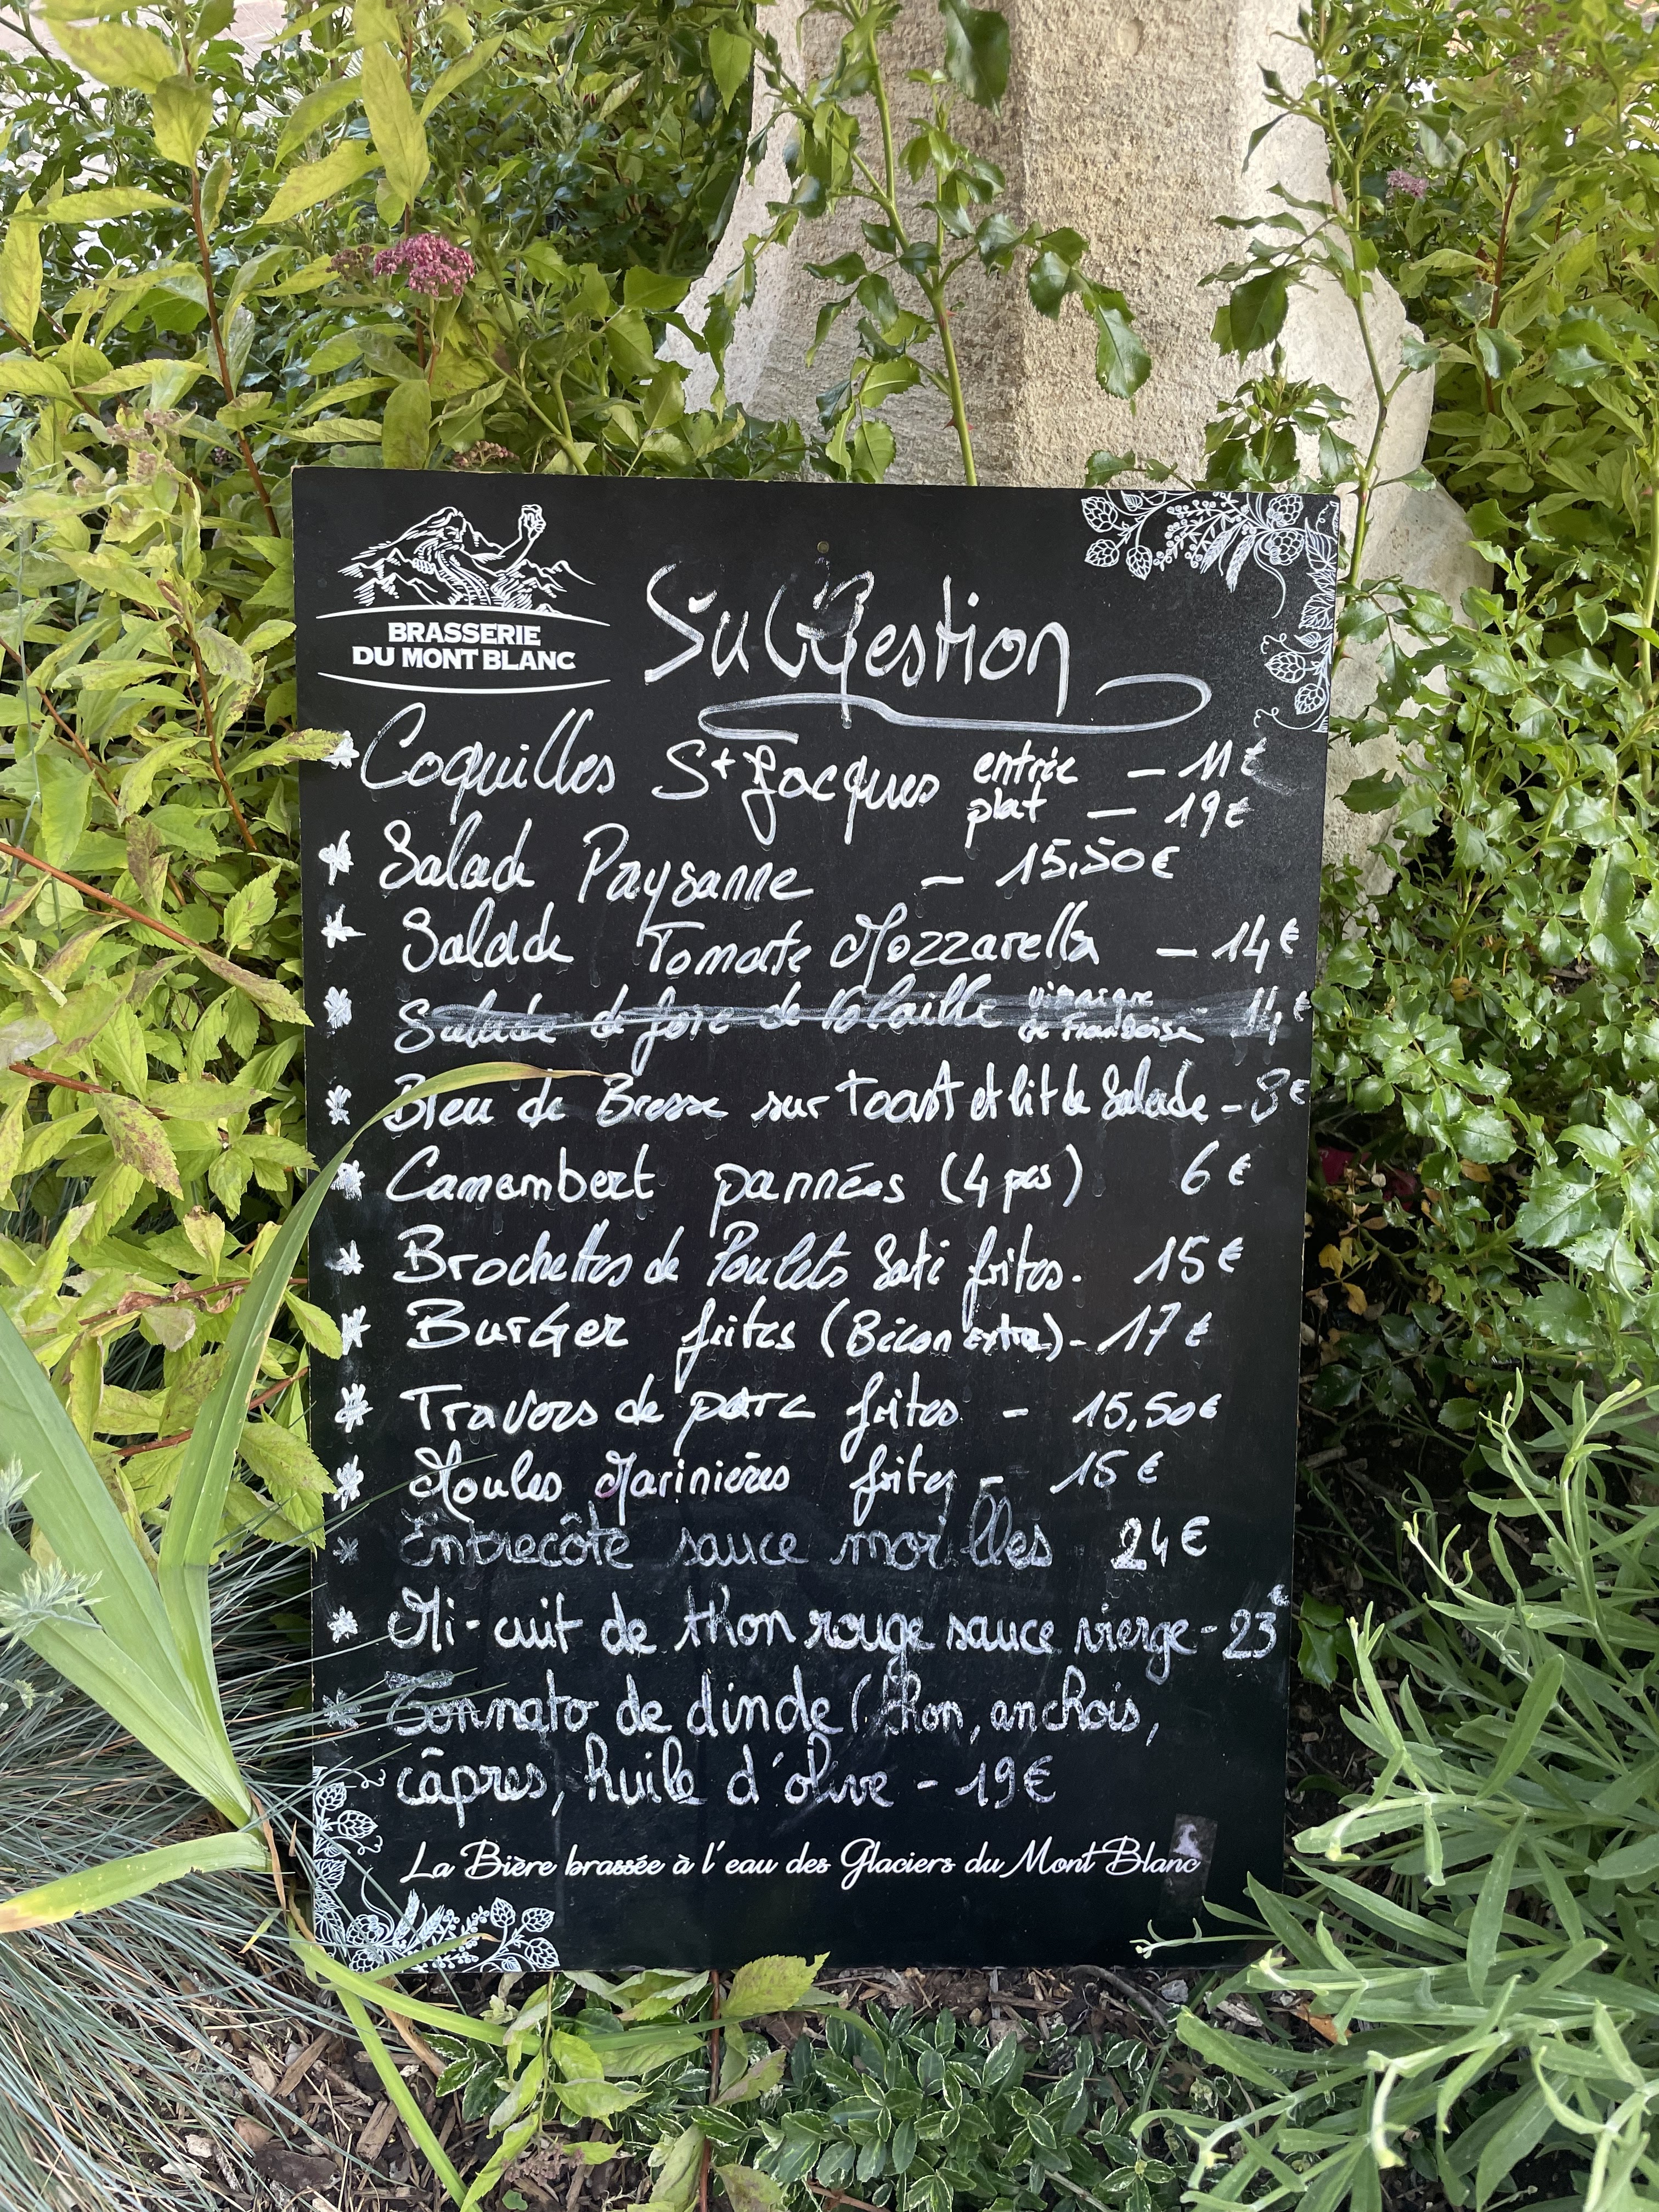 BRASSERIE
DU MONT BLANC
Suggestion
* Coquilles St Jacques entrée - 11€
plat - 19€
* Salade Paysanne - 15,50€
* Salade Tomate Mozzarella - 14€
* Salade de foie de Volaille vinaigre de Framboise 14€
* Bleu de Bresse sur Toast et lit de Salade - 8€
* Camembert pannées (4 pcs) 6€
* Brochettes de Poulets Saté frites. 15€
* BurGer frites (Bacon Extra) - 17€
* Travers de porc frites - 15,50€
* Moules Marinières frites - 15€
* Entrecôte sauce morilles 24€
* Mi-cuit de thon rouge sauce vierge - 23€
* Tonnato de dinde (thon, anchois,
câpres, huile d'olive - 19€
La Bière brassée à l'eau des Glaciers du Mont Blanc